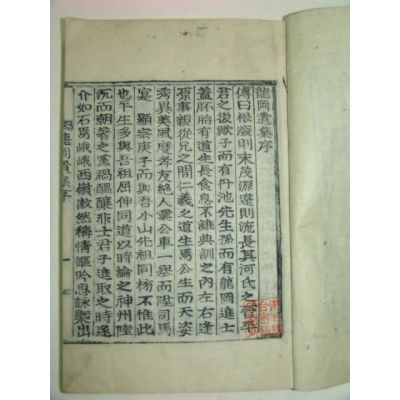 龍岡遺集序
傳曰根深則末茂源遠則流長其河氏之
君之後歟子而有丹池先生孫而有龍岡進士
蓋胚胎有道生長食息不離典訓之內左右逢
原事親從兄之間仁義之道生焉公生而天姿
秀異美風度孝友絶人業公車一擧而陞司馬
寔 顯宗庚子而與吾小山先祖同榜不惟此
也平生多與吾祖屈伸同道以時論之神州陸
沉而朝著之黨禍醞釀非士君子進取之時遂
介如石焉峨峨西嶺潝然稱情謳吟思詠槩出
龍岡遺集序